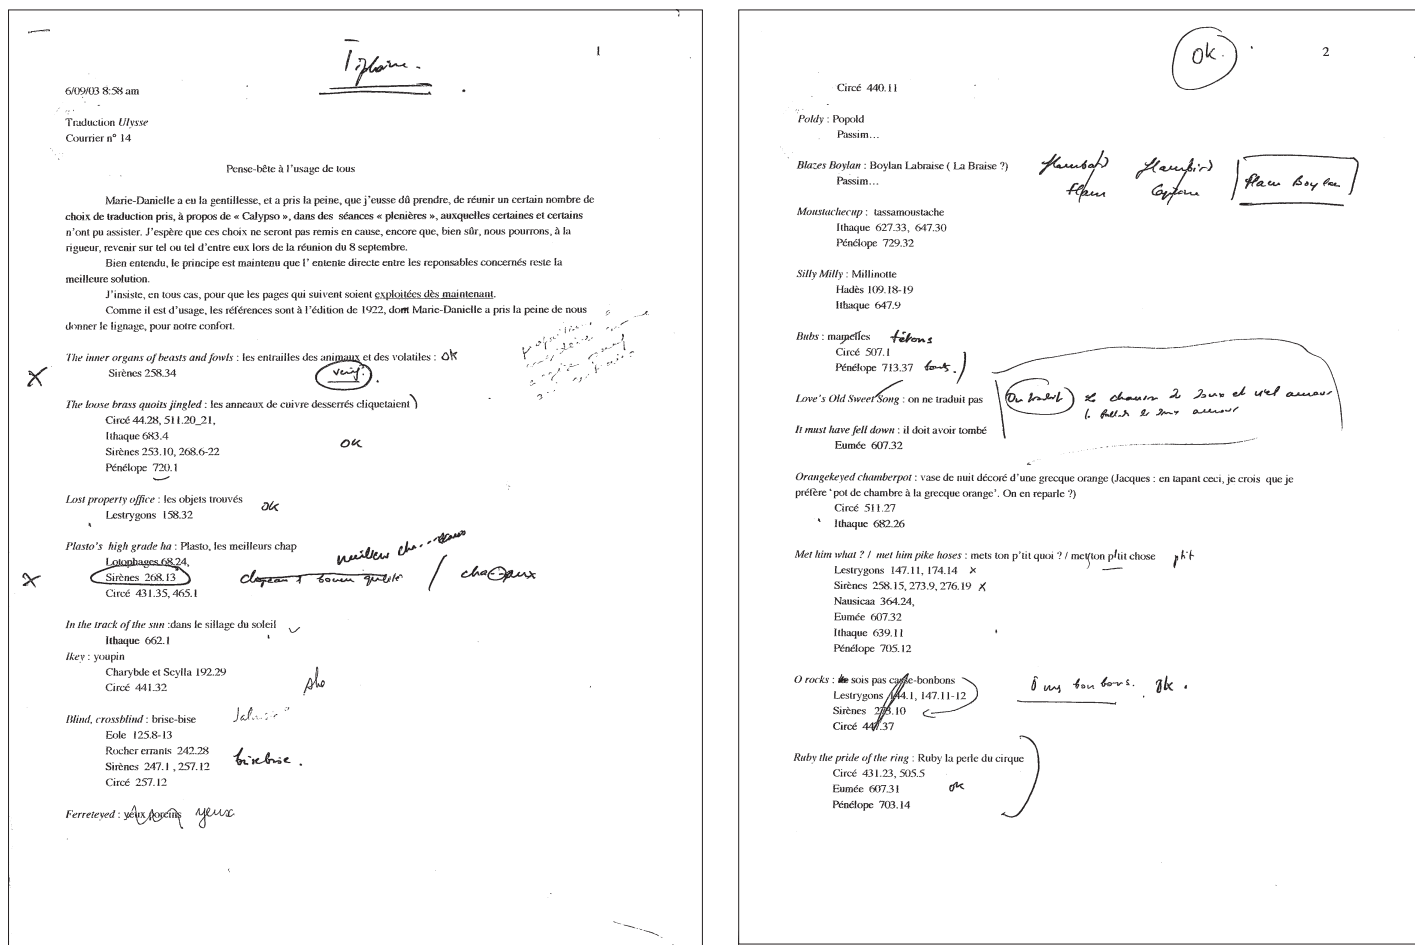 1
6/09/03 8:58 am
Traduction Ulysse
Courrier n° 14
Pense-bête à l'usage de tous
Marie-Danielle a eu la gentillesse, et a pris la peine, que j'eusse dû prendre, de réunir un certain nombre de
choix de traduction pris, à propos de « Calypso », dans des séances « plenières », auxquelles certaines et certains
n'ont pu assister. J'espère que ces choix ne seront pas remis en cause, encore que, bien sûr, nous pourrons, à la
rigueur, revenir sur tel ou tel d'entre eux lors de la réunion du 8 septembre.
Bien entendu, le principe est maintenu que l' entente directe entre les reponsables concernés reste la
meilleure solution.
J'insiste, en tous cas, pour que les pages qui suivent soient exploitées dès maintenant.
Comme il est d'usage, les références sont à l'édition de 1922, dont Marie-Danielle a pris la peine de nous
donner le lignage, pour notre confort.
The inner organs of beasts and fowls : les entrailles des animaux et des volatiles : ok
Sirènes 258.34
The loose brass quoits jingled : les anneaux de cuivre desserrés cliquetaient
Circé 44.28, 511.20_21,
Ithaque 683.4
Sirènes 253.10, 268.6-22 OK
Pénélope 720.1
Lost property office : les objets trouvés OK
Lestrygons 158.32
Plasto's high grade ha : Plasto, les meilleurs chap
Lotophages 68.24,
Sirènes 268.13
Circé 431.35, 465.1
In the track of the sun :dans le sillage du soleil
Ithaque 662.1
Ikey : youpin
Charybde et Scylla 192.29
Circé 441.32
Blind, crossblind : brise-bise
Eole 125.8-13
Rocher errants 242.28
Sirènes 247.1 , 257.12 brisebise.
Circé 257.12
Ferreteyed : yeux porcins yeux
2
OK.
Circé 440.11
Poldy : Popold
Passim…
Blazes Boylan : Boylan Labraise ( La Braise ?)
Passim…
Flam Boylan
Moustachecup : tassamoustache
Ithaque 627.33, 647.30
Pénélope 729.32
Silly Milly : Millinotte
Hadès 109.18-19
Ithaque 647.9
Bubs : mamelles tétons
Circé 507.1
Pénélope 713.37
Love's Old Sweet Song : on ne traduit pas
On traduit
It must have fell down : il doit avoir tombé
Eumée 607.32
Orangekeyed chamberpot : vase de nuit décoré d'une grecque orange (Jacques : en tapant ceci, je crois que je
préfère 'pot de chambre à la grecque orange'. On en reparle ?)
Circé 511.27
Ithaque 682.26
Met him what ? / met him pike hoses : mets ton p'tit quoi ? / mets ton p'tit chose
Lestrygons 147.11, 174.14 x
Sirènes 258.15, 273.9, 276.19 x
Nausicaa 364.24,
Eumée 607.32
Ithaque 639.11
Pénélope 705.12
O rocks : sois pas casse-bonbons
Lestrygons 144.1, 147.11-12
Sirènes 273.10
Circé 447.37
Ruby the pride of the ring : Ruby la perle du cirque
Circé 431.23, 505.5
Eumée 607.31 OK
Pénélope 703.14